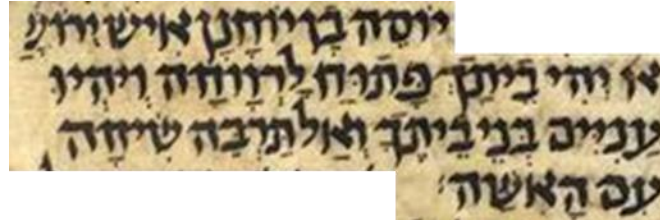 יוסה בן יוחנן איש ירוש
או יהי ביתך פתוח לרווחה ויהיו
עניים בני ביתך ואל תרבה שיחה
עם האשה